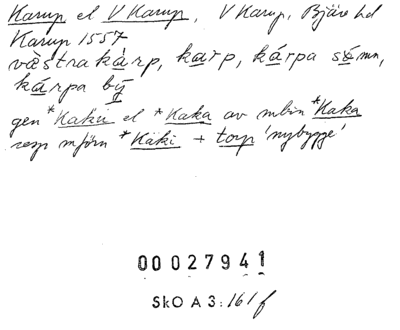 Karup el V Karup, V Karup, Bjäre hd
Karup 1557
västra kàrp, karp, kárpa sómn,
kárpa bý
gen *Kaku el *Kaka av mbin *Kaka
resp mforn *Kāki + torp 'nybygge'
00027941
SkO A 3: 161 f